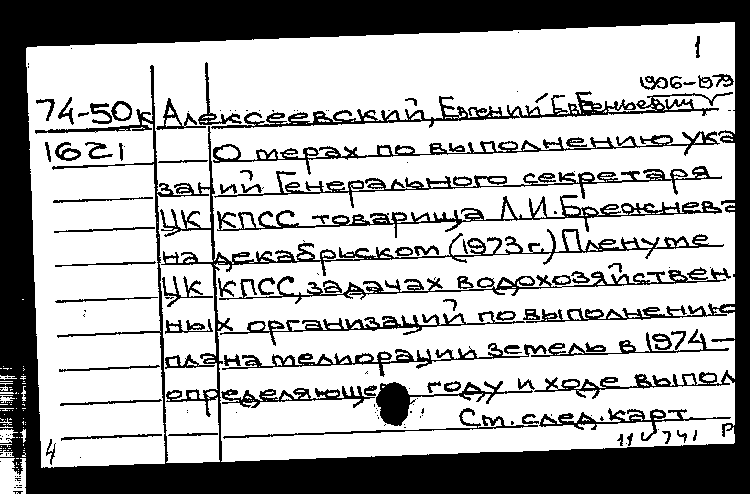 1
1906-1979
74-50к Алексеевский, Евгений Евгеньевич,
1621 О мерах по выполнению ука
заний Генерального секретаря
ЦК КПСС товарища Л.И.Брежнева
на декабрьском (1973 г.) Пленуме
ЦК КПСС, задачах водохозяйствен.
ных организаций по выполнению
плана мелиорации земель в 1974 —
определяюще году и ходе выпол
См. след. карт.
4